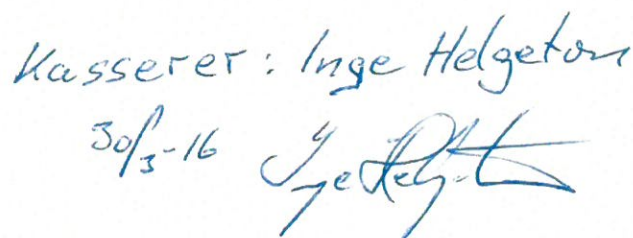 Kasserer: Inge Helgeton
30/3-16 Inge Helgeton